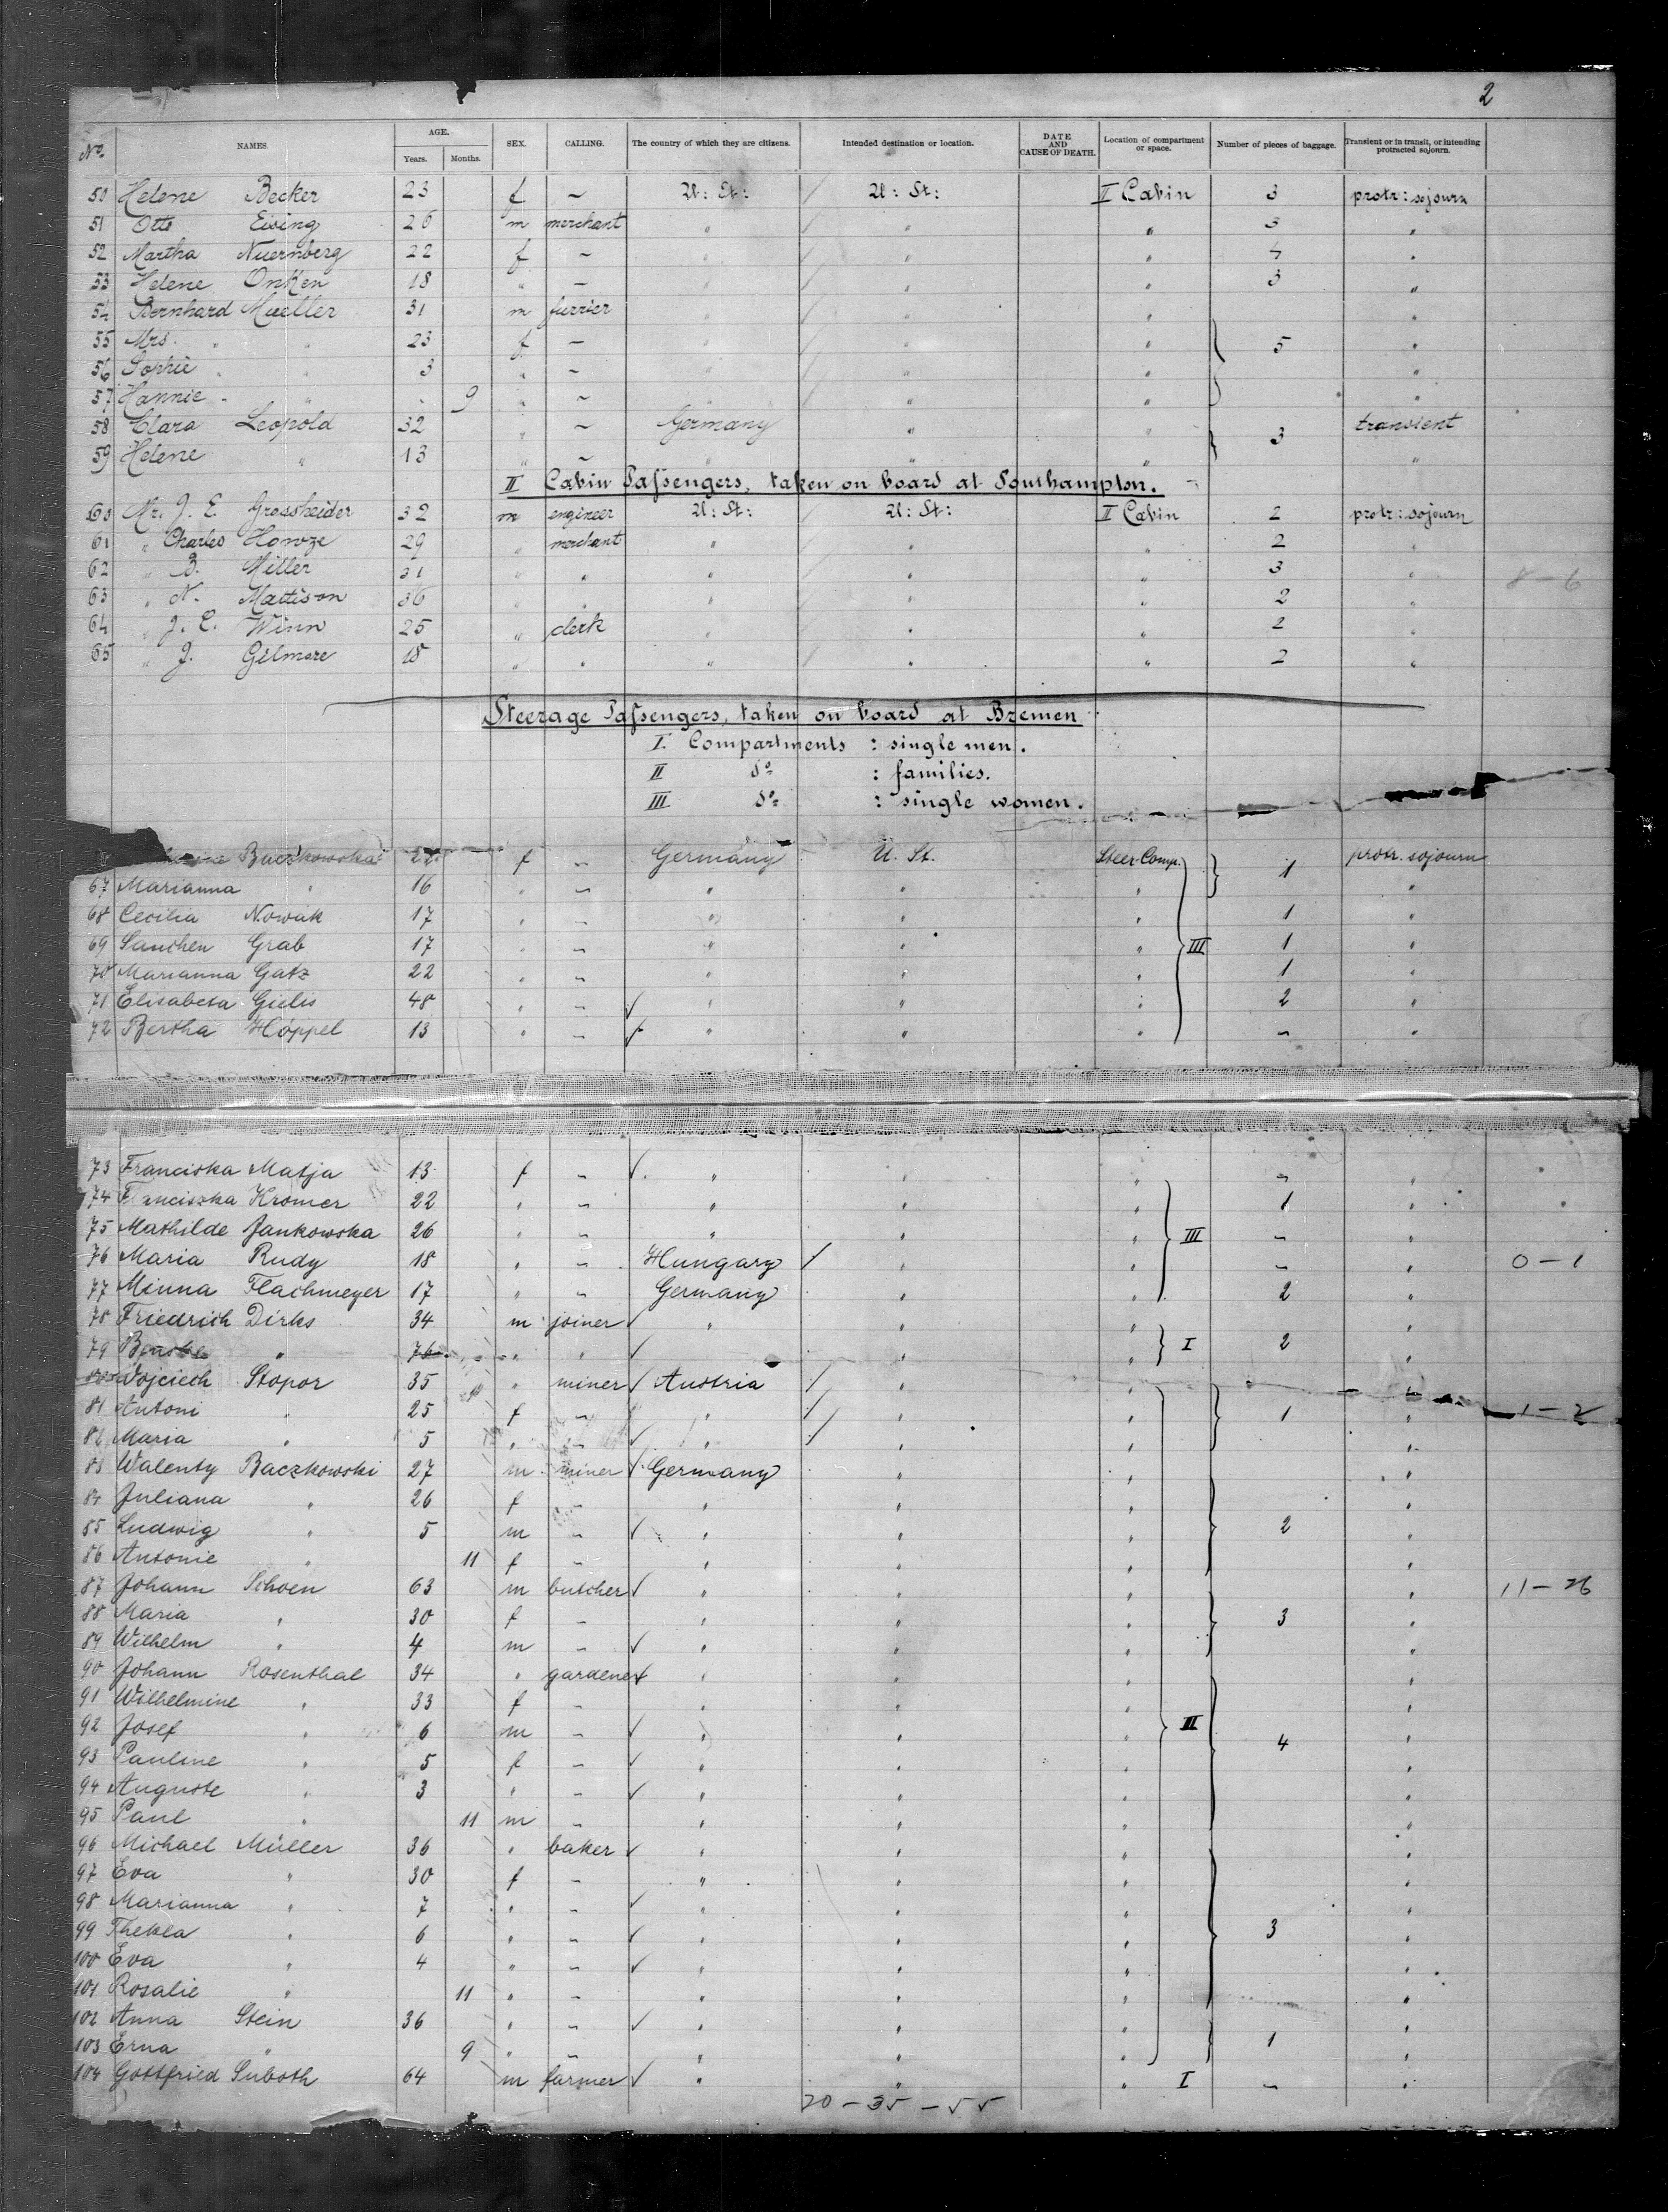 2
No. NAMES. AGE. Years. Months. SEX. CALLING. The country of which they are citizens. Intended destination or location. DATE AND CAUSE OF DEATH. Location of compartment or space. Number of pieces of baggage. Transient or in transit, or intending protracted sojourn.
50 Helene Becker 23 f ~ U: St: U: St: II Cabin 3 protr: sojourn
51 Otto Eising 26 m merchant " " " 3 "
52 Martha Nuernberg 22 f ~ " " " 4 "
53 Helene Onken 18 " ~ " " " 3 "
54 Bernhard Mueller 31 m furrier " " " "
55 Mrs. " " 23 f ~ " " " 5 "
56 Sophie " " 3 " ~ " " " "
57 Hannie " " 9 " ~ " " "
58 Clara Leopold 32 " ~ Germany " " 3 transient
59 Helene " 13 " ~ " " " "
II Cabin Passengers, taken on board at Southampton.
60 Mr. J. E. Grossheider 32 m engineer U: St: U: St: II Cabin 2 protr: sojourn
61 " Charles Howze 29 " merchant " " " 2 "
62 " B. Miller 31 " " " " " 3 " 8-6
63 " N. Mattison 36 " " " " " 2 "
64 " J. E. Winn 25 " clerk " " " 2 "
65 " J. Gilmore 18 " " " " " 2 "
Steerage Passengers, taken on board at Bremen
I. Compartments : single men.
II do : families.
III do : single women.
Baczkowska f ~ Germany U. St. Steer. Comp. 1 protr. sojourn
67 Marianna " 16 " ~ " " " "
68 Cecilia Nowak 17 " ~ " " " 1 "
69 Sanchen Grab 17 " ~ " " " III 1 "
70 Marianna Gatz 22 " ~ " " " 1 "
71 Elisabeta Gielis 48 " ~ " " " 2 "
72 Bertha Höppel 13 " ~ " " " ~ "
73 Franciska Matja 13 f ~ " " " ~ "
74 Franciszka Kromer 22 " ~ " " " 1 "
75 Mathilde Jankowska 26 " ~ " " " III ~ "
76 Maria Rudy 18 " ~ Hungary " " ~ " 0-1
77 Minna Flachmeyer 17 " ~ Germany " " 2 "
78 Friedrich Dirks 34 m joiner " " " "
79 " 76 " " " " I 2 "
80 Wojciech Stopor 35 " miner Austria " " "
81 Antoni " 25 f ~ " " " 1 " 1-2
82 Maria " 5 " ~ " " " "
83 Walenty Baczkowski 27 m miner Germany " " "
84 Juliana " 26 f ~ " " " "
85 Ludwig " 5 m ~ " " " 2 "
86 Antonie " 11 f ~ " " " "
87 Johann Schoen 63 m butcher " " " " 11-26
88 Maria " 30 f ~ " " " 3 "
89 Wilhelm " 4 m ~ " " " "
90 Johann Rosenthal 34 " gardener " " " "
91 Wilhelmine " 33 f ~ " " " "
92 Josef " 6 m ~ " " " II "
93 Pauline " 5 f ~ " " " 4 "
94 Auguste " 3 " ~ " " " "
95 Paul " 11 m ~ " " " "
96 Michael Müller 36 " baker " " " "
97 Eva " 30 f ~ " " " "
98 Marianna " 7 " ~ " " " "
99 Thekla " 6 " ~ " " " 3 "
100 Eva " 4 " ~ " " " "
101 Rosalie " 11 " ~ " " " "
102 Anna Stein 36 " ~ " " " "
103 Erna " 9 " ~ " " " 1 "
104 Gottfried Suboth 64 m farmer " " " I ~ "
20-35-55